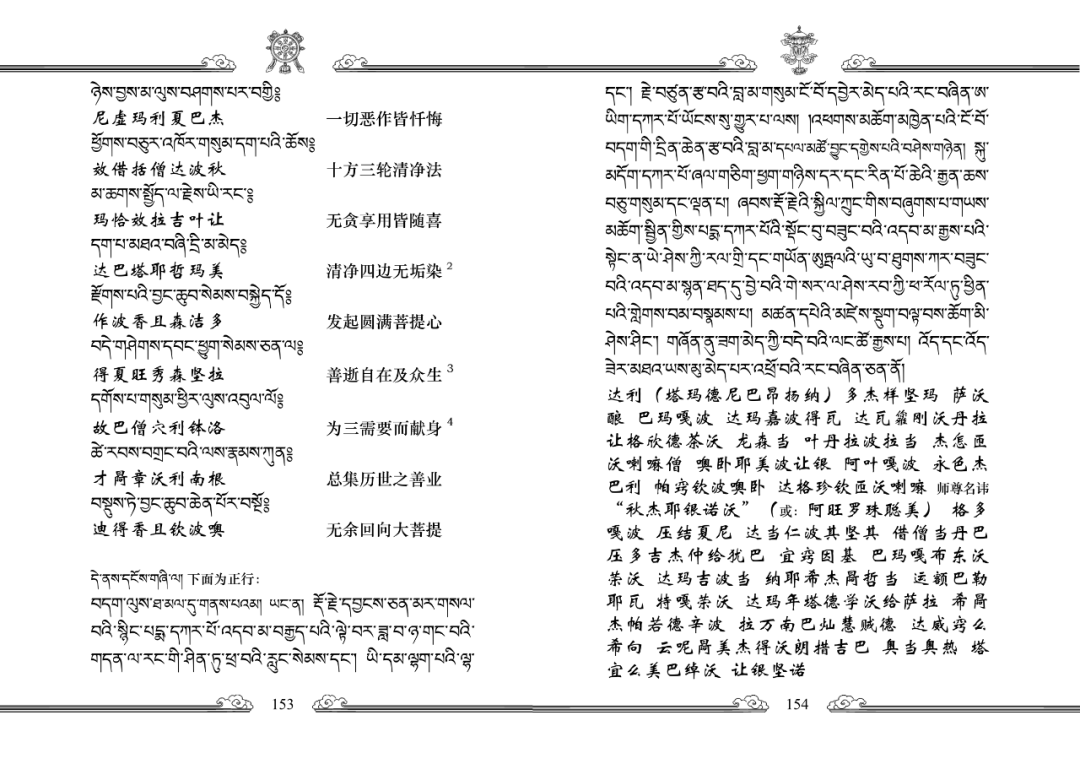 ཉེས་བྱས་མ་ལུས་བཤགས་པར་བགྱི༔
尼虚玛利夏巴杰 一切恶作皆忏悔
ཕྱོགས་བཅུར་འཁོར་གསུམ་དག་པའི་ཆོས༔
效借括僧达波秋 十方三轮清净法
མ་ཆགས་སྤྱོད་ལ་རྗེས་ཡི་རང་༔
玛恰效拉吉叶让 无贪享用皆随喜
དག་པ་མཐའ་བཞི་དྲི་མ་མེད༔
达巴塔耶哲玛美 清净四边无垢染 2
རྫོགས་པའི་བྱང་ཆུབ་སེམས་བསྐྱེད་དོ༔
作波香且森洁多 发起圆满菩提心
བདེ་གཤེགས་དབང་ཕྱུག་སེམས་ཅན་ལ༔
得夏旺秀森坚拉 善逝自在及众生 3
དགོས་པ་གསུམ་ཕྱིར་ལུས་འབུལ་ལོ༔
故巴僧穴利钵洛 为三需要而献身 4
ཚེ་རབས་བགྲང་བའི་ལས་རྣམས་ཀུན༔
才咼章沃利南根 总集历世之善业
བསྡུས་ཏེ་བྱང་ཆུབ་ཆེན་པོར་བསྔོ༔
迪得香且钦波噢 无余回向大菩提
དེ་ནས་དངོས་གཞི་ལ། 下面为正行：
བདག་ལུས་ཐ་མལ་དུ་གནས་པའམ། ཡང་ན། རྡོ་རྗེ་དབྱངས་ཅན་མར་གསལ་
བའི་སྙིང་པདྨ་དཀར་པོ་འདབ་མ་བརྒྱད་པའི་ལྟེ་བར་ཟླ་བ་ཉ་གང་བའི་
གདན་ལ་རང་གི་ཤིན་ཏུ་ཕྲ་བའི་རླུང་སེམས་དང་། ཡི་དམ་ལྷག་པའི་ལྷ་
153
དང་། རྗེ་བཙུན་རྩ་བའི་བླ་མ་གསུམ་ངོ་བོ་དབྱེར་མེད་པའི་རང་བཞིན་ཨ་
ཡིག་དཀར་པོ་ཡོངས་སུ་གྱུར་པ་ལས། །འཕགས་མཆོག་མཁྱེན་པའི་ངོ་བོ་
བདག་གི་དྲིན་ཆེན་རྩ་བའི་བླ་མ་དཔལ་མཚོ་བྱུང་དགྱེས་པའི་བཤེས་གཉེན། སྐུ་
མདོག་དཀར་པོ་ཞལ་གཅིག་ཕྱག་གཉིས་དར་དང་རིན་པོ་ཆེའི་རྒྱན་ཆས་
བཅུ་གསུམ་དང་ལྡན་པ། ཞབས་རྡོ་རྗེའི་སྐྱིལ་ཀྲུང་གིས་བཞུགས་པ་གཡས་
མཆོག་སྦྱིན་གྱིས་པདྨ་དཀར་པོའི་སྡོང་བུ་བཟུང་བའི་འདབ་མ་རྒྱས་པའི་
སྟེང་ན་ཡེ་ཤེས་ཀྱི་རལ་གྲི་དང་གཡོན་ཨུཏྤལའི་ཡུ་བ་ཐུགས་ཀར་བཟུང་
བའི་འདབ་མ་སྙན་ཐད་དུ་བྱེ་བའི་གེ་སར་ལ་ཤེས་རབ་ཀྱི་ཕ་རོལ་ཏུ་ཕྱིན་
པའི་གླེགས་བམ་བསྣམས་པ། མཚན་དཔེའི་མཛེས་སྡུག་བལྟ་བས་ཆོག་མི་
ཤེས་ཤིང་། གཞོན་ནུ་ཟག་མེད་ཀྱི་བདེ་བའི་ལང་ཚོ་རྒྱས་པ། འོད་དང་འོད་
ཟེར་མཐའ་ཡས་མུ་མེད་པར་འཕྲོ་བའི་རང་བཞིན་ཅན་ནོ།
达利（塔玛德尼巴昂扬纳）多杰样坚玛 萨沃
酿 巴玛嘎波 达玛嘉波得瓦 达瓦 刚沃丹拉
让格欣德茶沃 龙森当 叶丹拉波拉当 杰怎匝
沃喇嘛僧 噢卧耶美波让银 阿叶嘎波 永色杰
巴利 帕窍钦波噢卧 达格珍钦匝沃喇嘛 师尊名讳
“秋杰耶银诺沃”（或：阿旺罗珠聪美） 格多
嘎波 压结夏尼 达当仁波其坚其 借僧当丹巴
压多吉杰仲给犹巴 宜窍因基 巴玛嘎布东沃
荣沃 达玛吉波当 纳耶希杰咼哲当 运额巴勒
耶瓦 特嘎荣沃 达玛年塔德学沃给萨拉 希咼
杰帕若德辛波 拉万南巴灿慧贼德 达威窍么
希向 云呢咼美杰得沃朗措吉巴 奥当奥热 塔
宜么美巴绰沃 让银坚诺
154